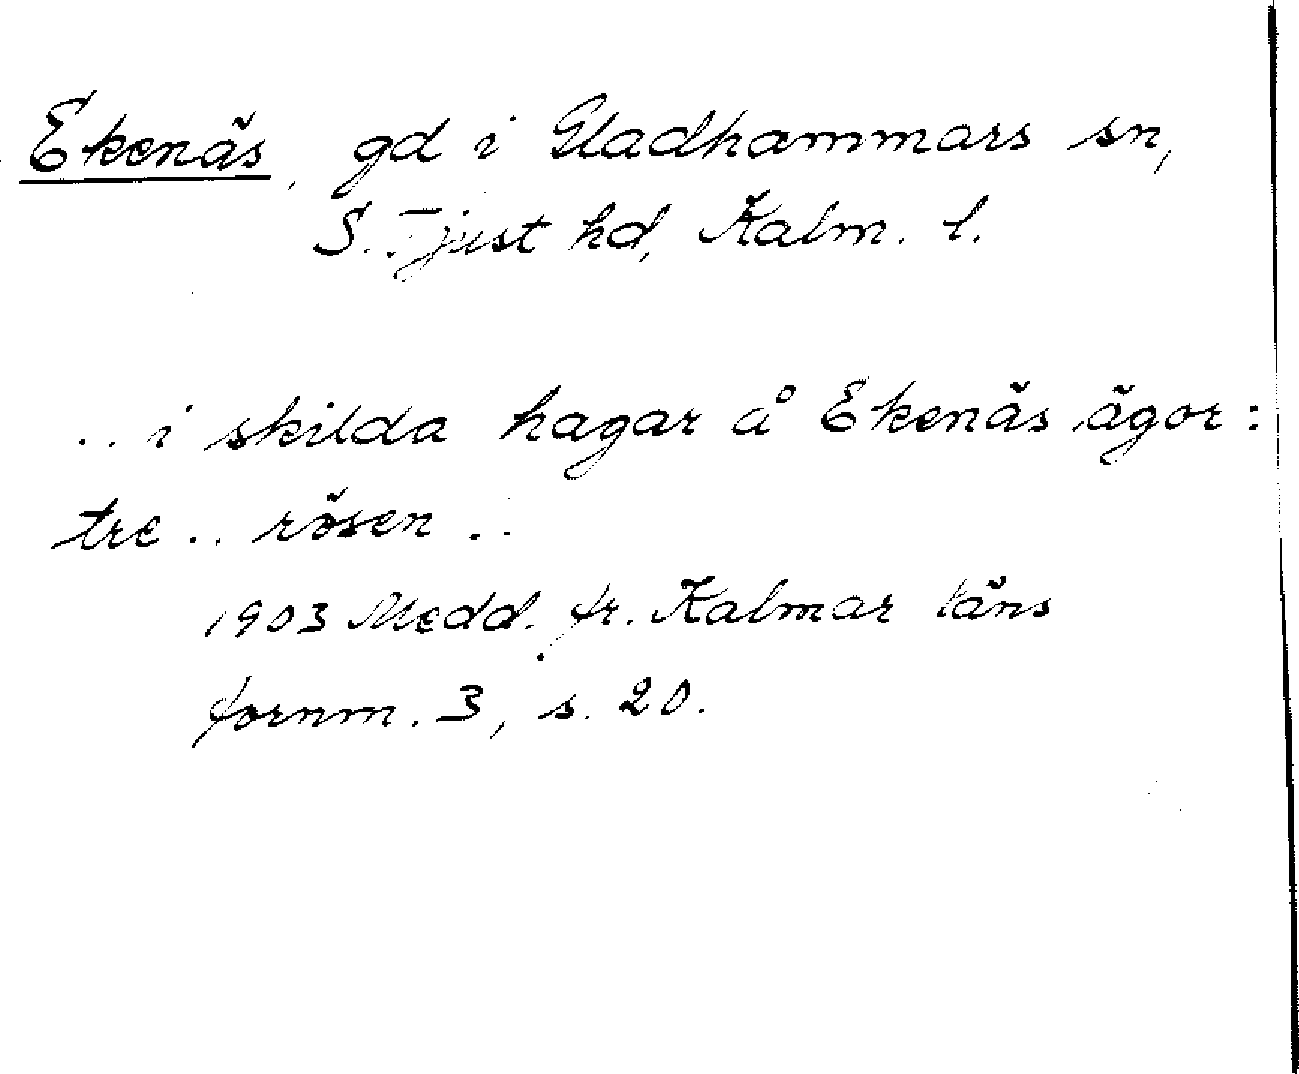 Ekenäs, gd i Gladhammars sn,
S. Tjust hd, Kalm. l.
.. i skilda hagar å Ekenäs ägor:
tre .. rösen ..
1903 Medd. fr. Kalmar läns
fornm. 3, s. 20.